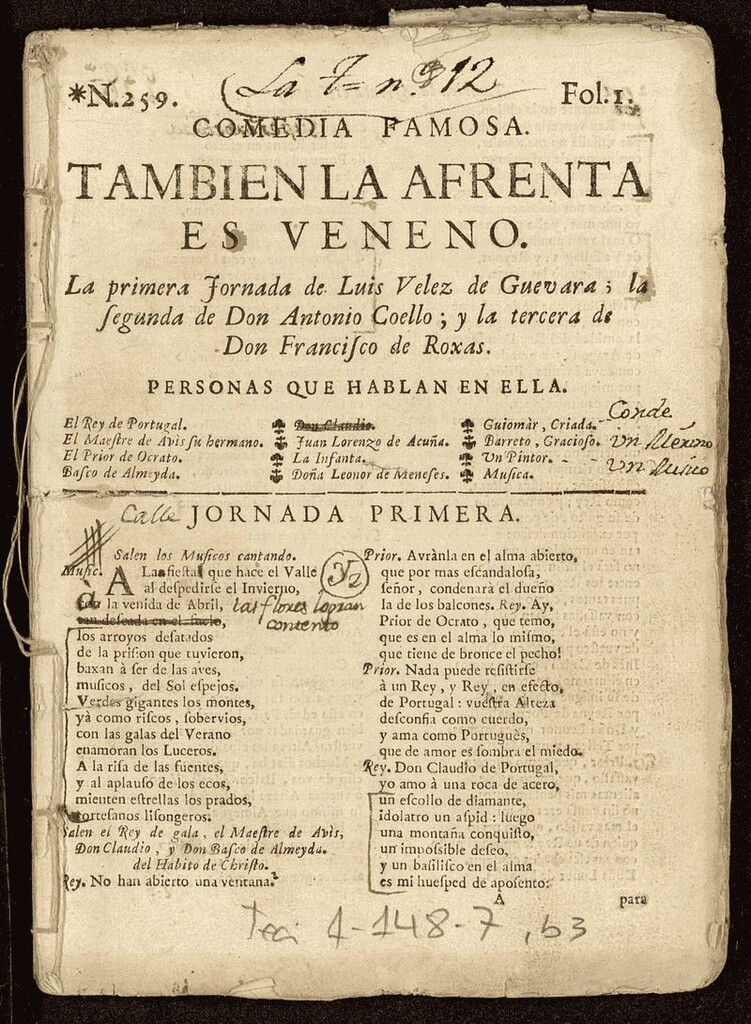 *N.259.
La 7= n.º 12
Fol.1.
COMEDIA FAMOSA.
TAMBIEN LA AFRENTA
ES VENENO.
La primera Jornada de Luis Velez de Guevara; la
ſegunda de Don Antonio Coello; y la tercera de
Don Franciſco de Roxas.
PERSONAS QUE HABLAN EN ELLA.
El Rey de Portugal.
El Maeſtre de Avis ſu hermano.
El Prior de Ocrato.
Basco de Almeyda.
Don Claudio.
Juan Lorenzo de Acuña.
La Infanta.
Doña Leonor de Meneſes.
Guiomàr, Criada.
Barreto, Gracioſo.
Un Pintor.
Musica.
Conde
Un
Un Musico
Calle
JORNADA PRIMERA.
Salen los Musicos cantando.
Music. A La fieſta que hace el Valle
al deſpedirſe el Invierno,
la venida de Abril,
las flores
contento
los arroyos deſatados
de la priſion que tuvieron,
baxan à ſer de las aves,
muſicos, del Sol eſpejos.
Verdes gigantes los montes,
yà como riſcos, ſobervios,
con las galas del Verano
enamoran los Luceros.
A la riſa de las fuentes,
y al aplauſo de los ecos,
mienten eſtrellas los prados,
cortesanos liſongeros.
Salen el Rey de gala, el Maeſtre de Avìs,
Don Claudio, y Don Basco de Almeyda.
del Habito de Chriſto.
Rey. No han abierto una ventana?
Prior. Avrànla en el alma abierto,
que por mas eſcandaloſa,
ſeñor, condenarà el dueño
la de los balcones. Rey. Ay,
Prior de Ocrato, que temo,
que es en el alma lo miſmo,
que tiene de bronce el pecho!
Prior. Nada puede reſiſtirſe
à un Rey, y Rey, en efecto,
de Portugal: vueſtra Alteza
deſconfia como cuerdo,
y ama como Portuguès,
que de amor es ſombra el miedo.
Rey. Don Claudio de Portugal,
yo amo à una roca de acero,
un eſcollo de diamante,
idolatro un aſpid: luego
una montaña conquiſto,
un impoſsible deſeo,
y un baſiliſco en el alma
es mi hueſped de apoſento:
A
para
Tea 1-148-7, b3